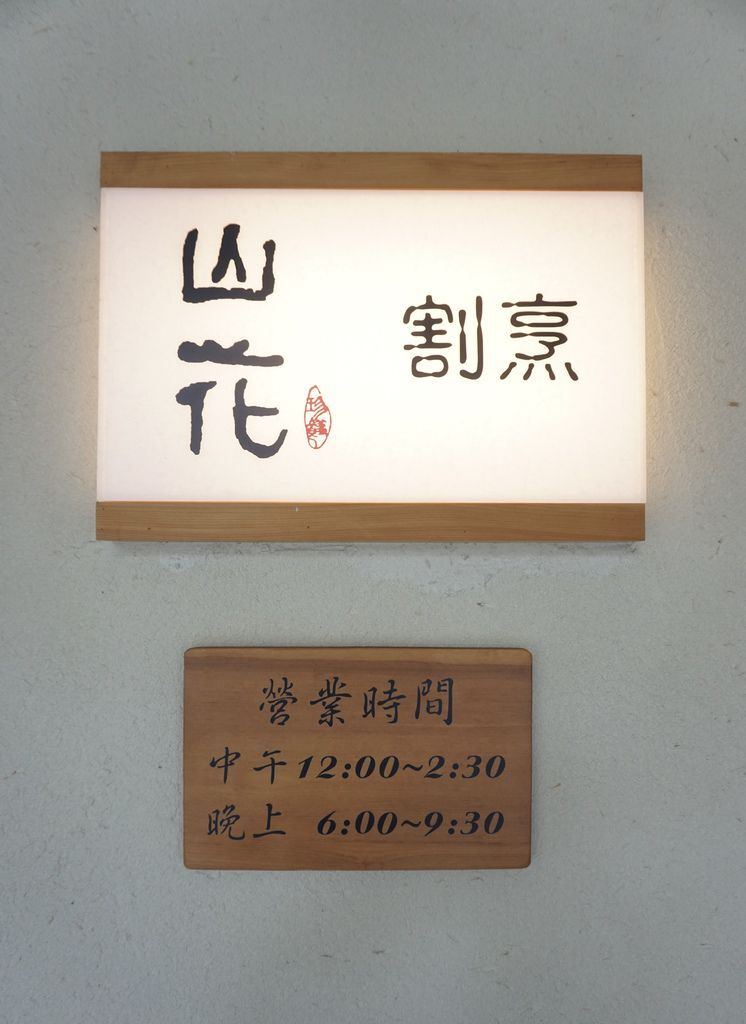 山花
割烹
營業時間
中午12:00~2:30
晚上 6:00~9:30